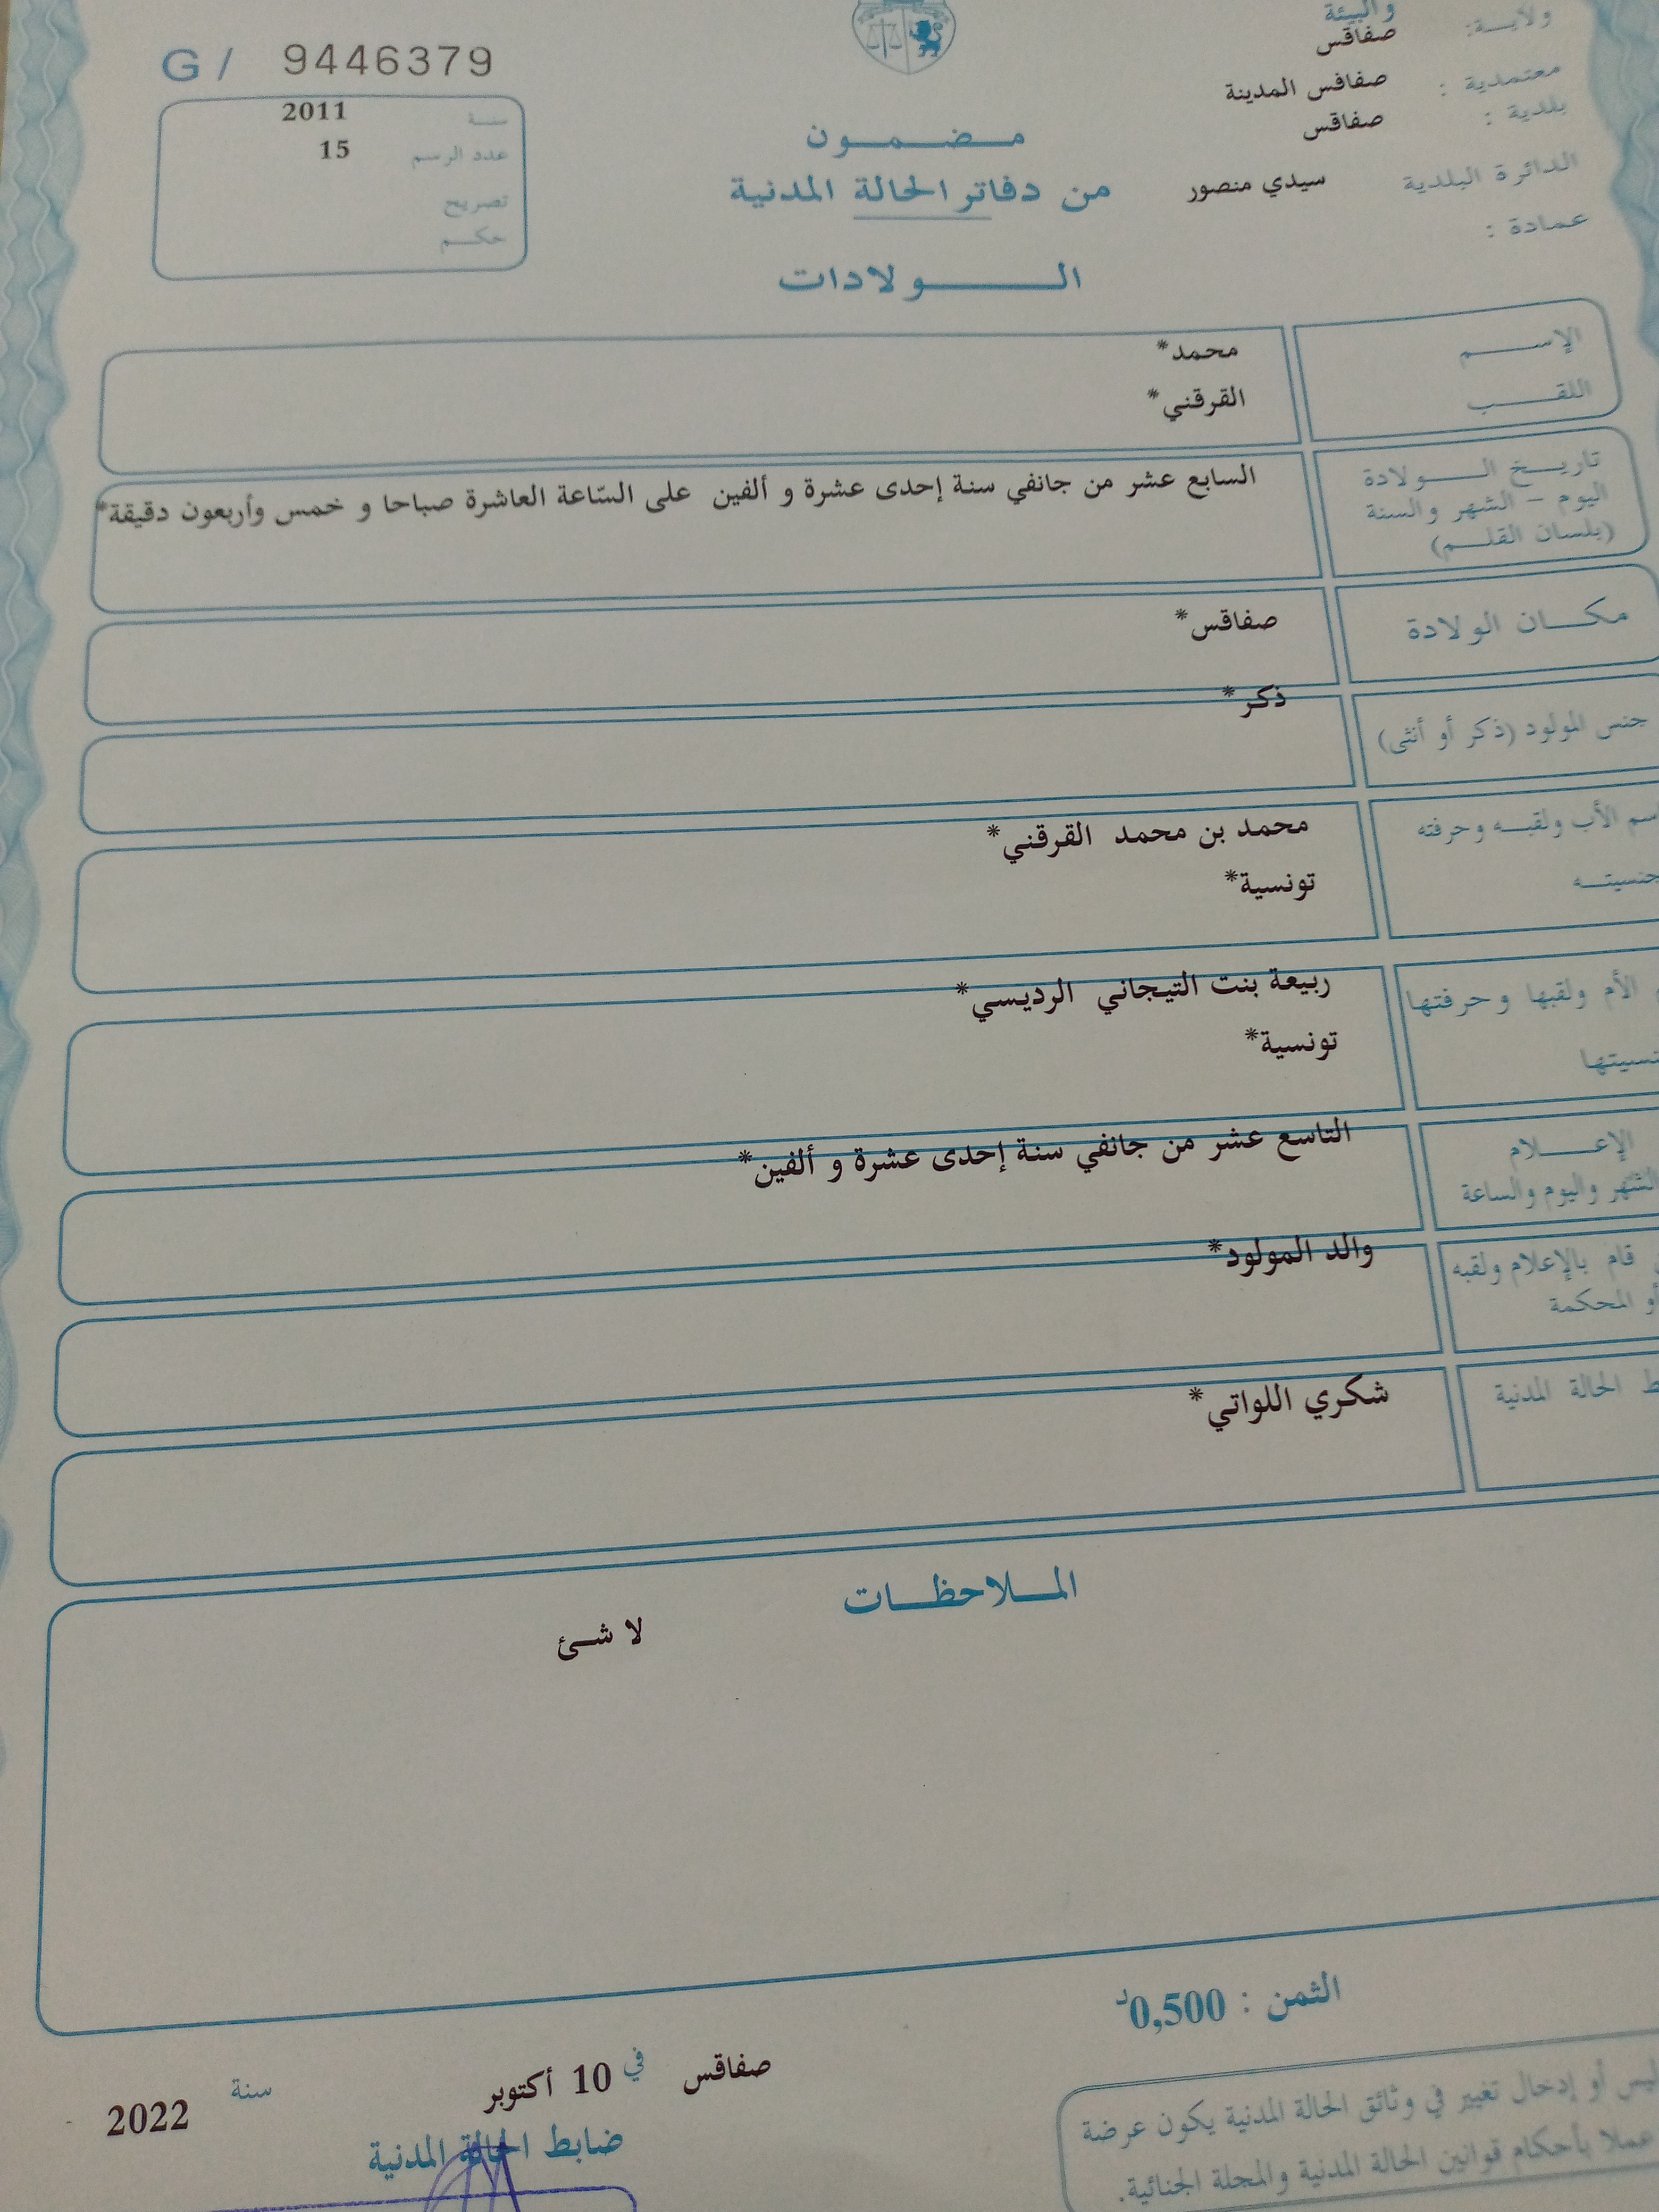 والبيئة
ولايـــة: صفاقس
معتمدية : صفاقس المدينة
بلدية : صفاقس
الدائرة البلدية سيدي منصور
عمادة :
G / 9446379
سنـــة 2011
عدد الرسم 15
تصريح
حكــم
مـــضـــمـــون
من دفاتر الحالة المدنية
الـــــولادات
الإســـــم محمد*
اللقـــــب القرقني*
تاريـــخ الـــــولادة السابع عشر من جانفي سنة إحدى عشرة و ألفين على السّاعة العاشرة صباحا و خمس وأربعون دقيقة*
اليوم – الشهر والسنة
(بلسان القلـــم)
مكـــان الولادة صفاقس*
جنس المولود (ذكر أو أنثى) ذكر*
سم الأب ولقبـــه وحرفته محمد بن محمد القرقني*
جنسيتـــه تونسية*
الأم ولقبها وحرفتها ربيعة بنت التيجاني الرديسي*
نسيتها تونسية*
الإعـــــلام التاسع عشر من جانفي سنة إحدى عشرة و ألفين*
الشهر واليوم والساعة
قام بالإعلام ولقبه والد المولود*
أو المحكمة
ط الحالة المدنية شكري اللواتي*
المـــلاحظـــات
لا شـئ
الثمن : 0,500د
صفاقس في 10 أكتوبر سنة 2022
ضابط الحالة المدنية
ليس أو إدخال تغيير في وثائق الحالة المدنية يكون عرضة
عملا بأحكام قوانين الحالة المدنية والمجلة الجنائية.